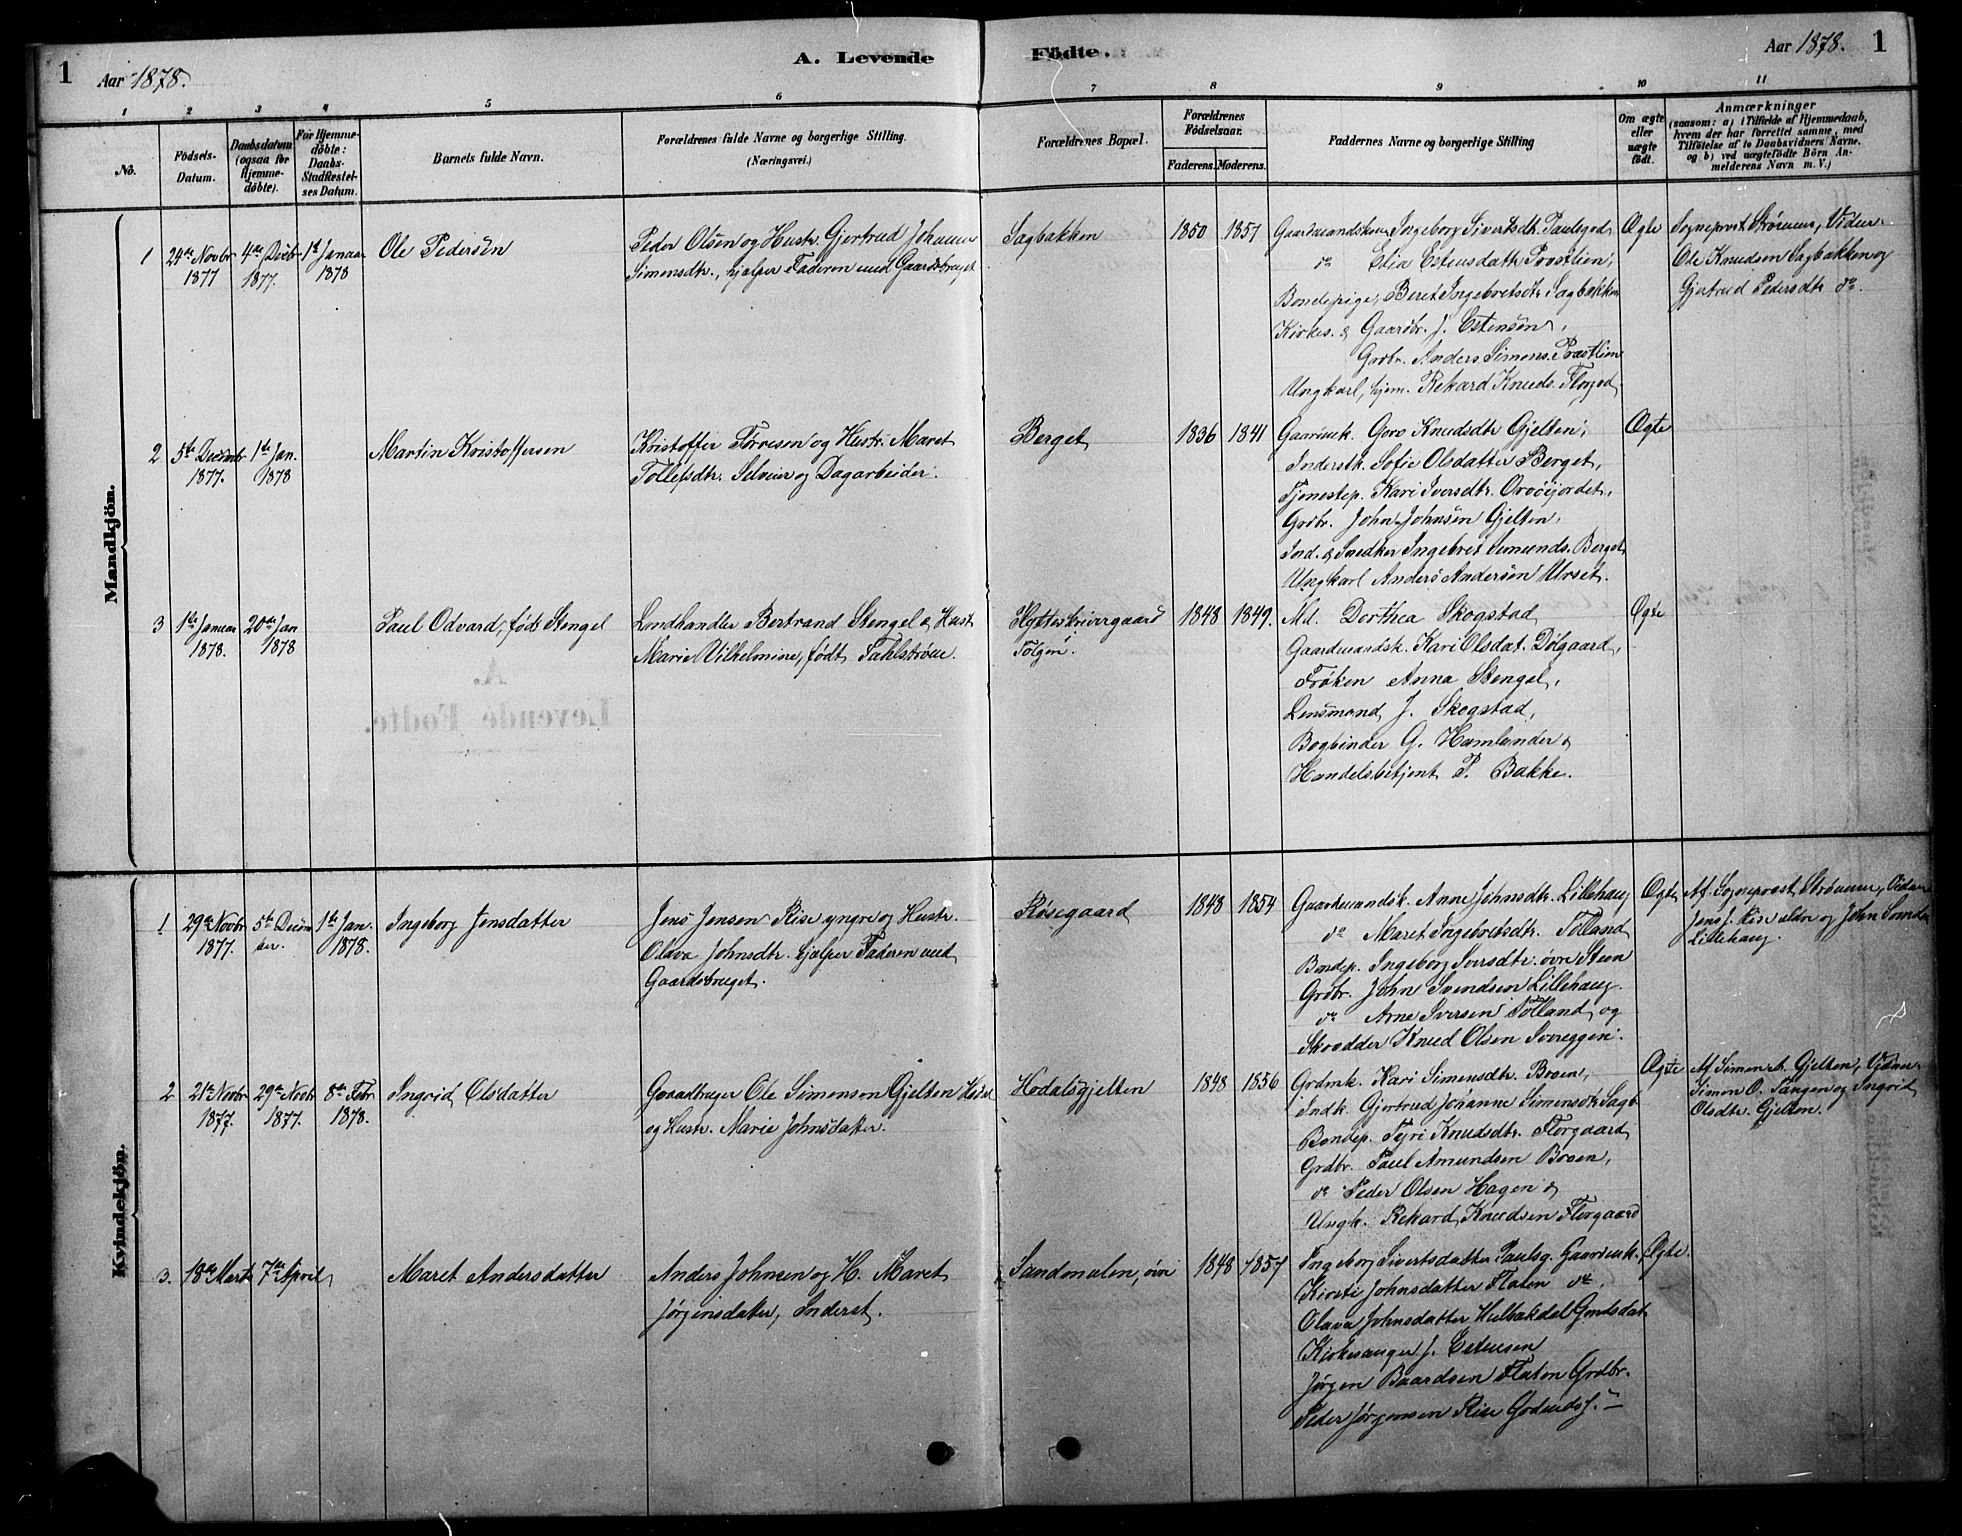 1 Aar 1878. A. Levende
Födte. Aar 1878. 1
1 2 3 4 5 6 7 8 9 10 11
No.
Födsels-
Datum.
Daabsdatum
(ogsaa for
Hjemme-
döbte).
For Hjemme-
döbte:
Daabs-
Stadfæstel-
ses Datum.
Barnets fulde Navn.
Forældrenes fulde Navne og borgerlige Stilling.
(Næringsvei.)
Forældrenes Bopæl.
Forældrenes
Födselsaar.
Faderens. Moderens.
Faddernes Navne og borgerlige Stilling
Om ægte
eller
uægte
født.
Anmærkninger
(saasom: a) i Tilfælde af Hjemmedaab,
hvem der har forrettet samme, med
Tilföielse af to Daabsvidners Navne.
og b) ved uægtefødte Börn An-
melderens Navn m. V.)
Mandkjön.
1
24de Novbr
1877
4de Decbr
1877.
1st Januar
1878
Ole Pedersön
Peder Olsen og Hustr. Gjertrud Johanne
Simensdtr., hjælper Faderen med Gaardsbruget
Sagbakken
1850 1857
Gaardmandskone Ingeborg Sivertsdtr. Paulsgrd
do Ebia Estensdatter Præstlien,
Bondepige, Beret Ingebretsdtr. Sagbakken
Kirkes. & Gaardbr. J. Estensön,
Grdbr. Anders Simens. Præstlien
Ungkarl, hjem. Rekard Knuds. Florgrd
Ægte
Sogneprest Strömme, Vidner
Ole Knudsen Sagbakken og
Gjertrud Pedersdtr do.
2
5te Decembr
1877.
1ste Jan.
1878
Martin Kristoffersen
Kristoffer Toresen og Hustr. Maret
Tollefsdtr. Selveier og Dagarbeider.
Berget
1836 1841
Gaardmk. Goro Knudsdtr Gjelten,
Inderstk. Sofie Olsdatter Berget,
Tjenestep. Kari Iversdtr.
Grdbr. John Johnsen Gjelten,
Ind. & Snedker Ingebret Simunds. Berget
Ungkarl Anders Andersön Urset.
Ægte
3
1ste Januar
1878.
20de Jan
1878
Paul Odvard, født Stengel
Landhandler Bertrand Stengel & Hustr
Marie Vilhelmine, født Fahlstrøm.
Hytteskrivergaard
Tolgen.
1848 1849.
Md. Dorthea Skogstad
Gaardmandsk. Kari Olsdat. Dölgaard,
Fröken Anna Stengel,
Lensmand J. Skogstad,
Bogbinder G. Hamlander &
Handelsbetjent P. Bakke.
Ægte
Kvindekjön.
1
29de Novbr
1877.
5te Decem
ber.
1ste Jan.
1878.
Ingeborg Jensdatter
Jens Jensen Rise yngre og Hustr.
Olava Johnsdtr. hjælper Faderen med
Gaardsbruget.
Rösegaard
1848 1854
Gaardmandsk. Anne Johnsdtr. Lillehaug
do Maret Ingebretsdtr. Tolland
Bondep. Ingeborg Iversdtr. övre Steen
Grdbr. John Svendsen Lillehaug.
do Arne Iversen Tolland og
Skrædder Knud Olsen
Ægte
Af Sogneprest Strömme, Vidner
Jens J. Rise eldre og John Svends
Lillehaug.
2
21de Novbr
1877.
29de Novbr
1877.
8de Febr
1878.
Ingrid Olsdatter
Gaardbruger Ole Simensen Gjelten
og Hustr. Marie Johnsdatter.
Hodalsgjelten
1848 1856
Grdmk. Kari Simensdtr. Broen,
Indk. Gjertrud Johanne Simensdtr Sagb
Bondep. Tyri Knudsdtr. Florgaard
Grdbr. Paul Amundsen Broen,
do Peder Olsen Hagen &
Ungk. Rekard Knudsen Florgaard
Ægte
Af Simen A. Gjelten, Vidner
Simon O. Tangen og Ingrid
Olsdtr. Gjelten.
3.
18de Marts
7de April
Maret Andersdatter
Anders Johnsen og H. Maret
Jørgensdatter, Inderst.
Sandmælen, övre
1848 1857
Ingeborg Sivertsdatter Paulsg. Gaardmk.
Kirsti Johnsdatter Flaten do.
Olava Johnsdatter Hulbækdal
Kirkesanger J. Estensen
Jørgen Baardsen Flaten Grdbr.
Peder Jørgensen Rise
Ægte.